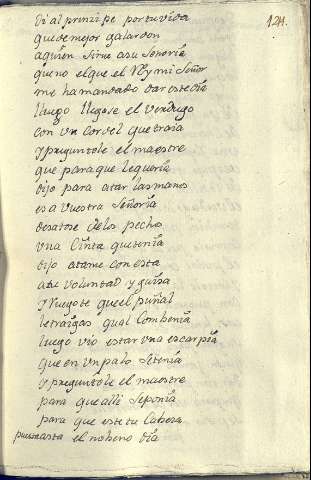 124.
di al prinzipe por tu vida
que de mejor galardon
a quien sirve a su Señoria
que no el que el Rey mi Señor
me ha mandado dar este dia
luego llegose el verdugo
con un cordel que traia
y preguntole el maestre
que para que le queria
dijo para atar las manos
es a vuestra Señoria
desatose de los pechos
una Cinta que tenia
dijo atame con esta
a tu voluntad y guisa
y Ruegote que el puñal
le traigas qual Combenia
luego vio estar una escarpia
que en un palo se tenia
y preguntole el maestre
para que alli se ponia
para que este tu Cabeza
puesta asta el nobeno dia